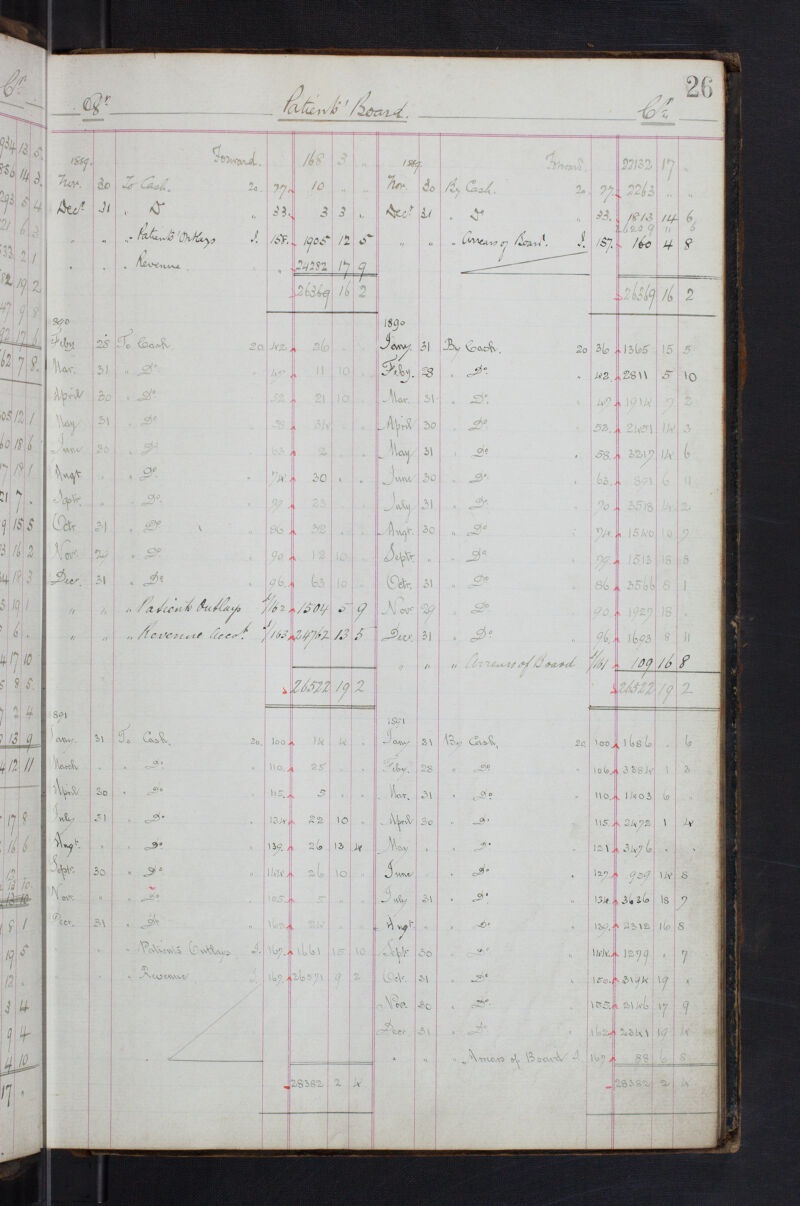 26
Dr. Patients' Board. Cr.
1889. Forward. 168 3 " 1889 Forward. 22132 17 "
Nov. 30 To Cash. 20 27 10 " " Nov. 30 By Cash. 20 27 2263 " "
Decr. 31 " Do " 33 3 3 " Decr. 31 " Do " 33 1813 14 6
26209 11 6
" " " Patients' Outlays J. 158 1905 12 5 " " " Arrears of Board. J. 157 160 4 8
" " " Revenue " " 24282 17 9
26369 16 2 26369 16 2
1890 1890
Feby 28 To Cash 20 42 26 . . Jany. 31 By Cash. 20 36 1365 15 5
Mar. 31 " Do. " 47 11 10 . Feby. 28 " Do. " 42 2811 5 10
April 30 " Do. " 52 21 10 . Mar. 31 " Do. " 47 1914 7 3
May 31 " Do " 58 34 . . April 30 " Do " 53 2451 14 3
June 30 " Do " 63 2 . . May 31 " Do " 58 3217 14 6
Augt " " Do " 74 30 . . June 30 " Do " 63 891 6 11
Septr. " " Do. " 79 23 . . July 31 " Do " 70 3518 14 2
Octr. 31 " Do " 86 38 . . Augt. 30 " Do " 74 1540 10 7
Novr. 29 " Do " 90 12 10 . Septr. " " Do " 79 1513 18 8
Decr. 31 " Do " 96 63 10 . Octr. 31 " Do " 86 3566 8 1
" " " Patients Outlays J/162 1504 5 9 Novr 29 " Do " 90 1927 18 .
" " " Revenue Acct. J/163 24762 13 5 Decr. 31 " Do " 96 1693 8 11
" " " Arrears of Board J/161 109 16 8
26522 19 2 26522 19 2
1891 1891
Jany. 31 To Cash. 20 100 14 4 . Jany 31 By Cash. 20 100 1686 . 6
March . " Do. " 110 25 . . Feby. 28 " Do " 106 3384 1 3
April 30 " Do " 115 5 . . Mar. 31 " Do. " 110 1403 6 .
July 31 " Do. " 134 22 10 . April 30 " Do " 115 2472 1 4
Augt. " " Do " 139 26 13 4 May " " Do " 121 3476 . .
Septr. 30 " Do " 144 26 10 . June " " Do " 127 909 14 8
Novr. " " Do " 155 5 . . July 31 " Do " 134 3636 18 7
Decr. 31 " Do " 162 24 . . Augt. " " Do " 139 2312 16 8
" " " Patients Outlays J. 167 1661 15 10 Septr 30 " Do " 144 1279 . 7
" " " Revenue J. 167 26571 9 2 Octr. 31 " Do " 150 3194 19 .
Nov. 30 " Do. " 155 2146 17 9
Decr 31 " Do " 162 2341 19 4
" " " Arrears of Board J. 167 88 6 8
28382 2 4 28382 2 4